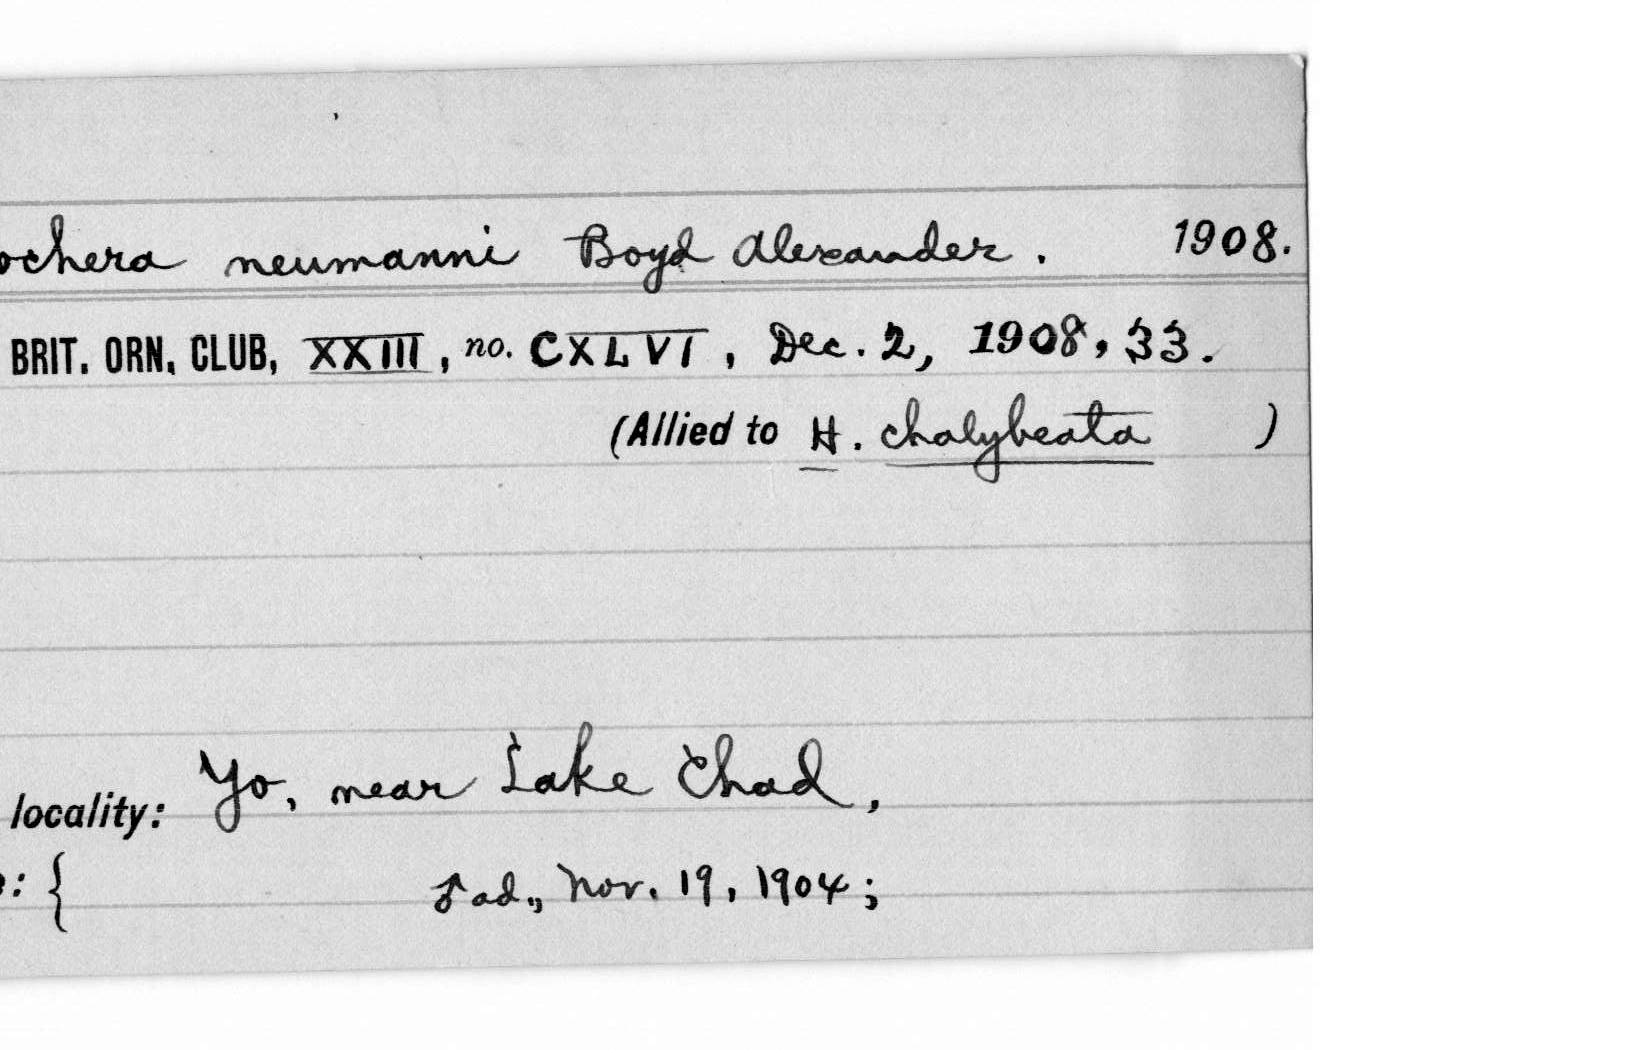 ochera neumanni Boyd Alexander. 1908.
BRIT. ORN. CLUB, XXIII, no. CXLVI, Dec. 2, 1908, 33.
(Allied to H. chalybeata )
locality: Yo, near Lake Chad,
: { ♂ ad., Nov. 19, 1904;